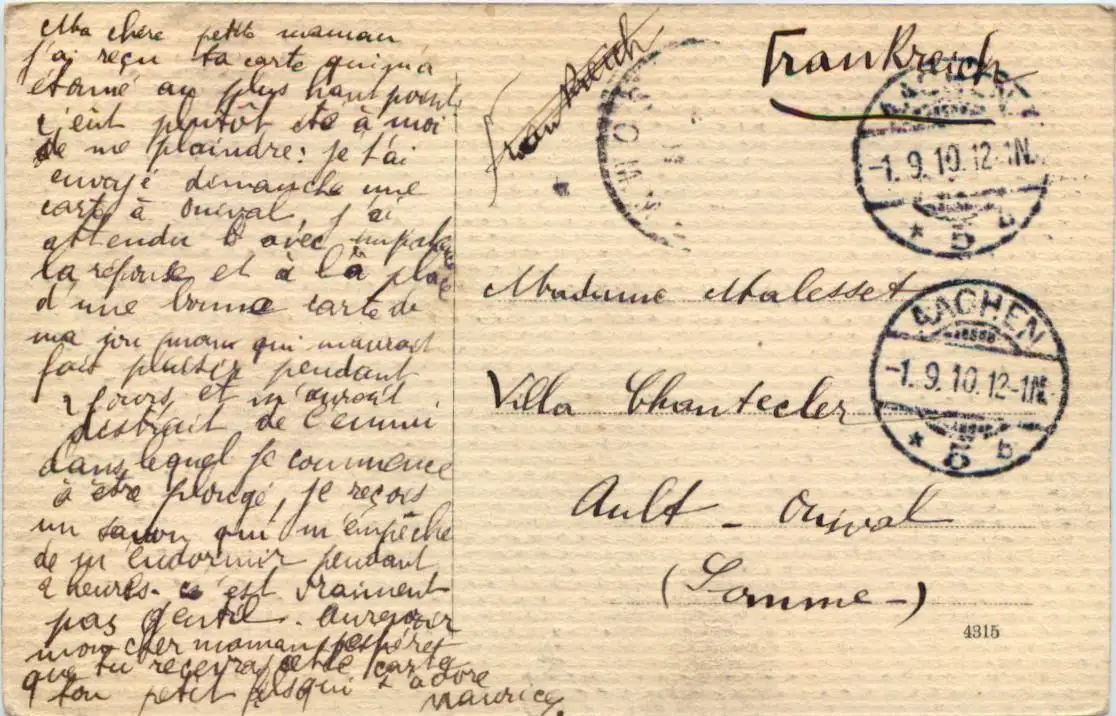 Ma chere petite maman
j'ai reçu ta carte qui m'a
étonné au plus haut point
c'eut plutôt été à moi
de me plaindre: je t'ai
envoyé dimanche une
carte à Onival, j'ai
attendu avec
la réponse et à la place
d'une bonne carte de
ma qui m'aurait
fait plaisir pendant
2 jours, et m'aurait
distrait de l'ennui
dans lequel je commence
à être plongé, je reçois
un savon qui m'empêche
de m'endormir pendant
2 heures. c'est vraiment
pas gentil. Aurevoir
mon cher maman
que tu recevra cette carte
ton petit qui t'adore
Maurice.
Frankreich
Frankreich
AACHEN
-1.9.10.12-1N.
* 5 b
Madame Malesset
AACHEN
-1.9.10.12-1N.
* 5 b
Villa Chantecler
Ault - Onival
(Somme-)
4315